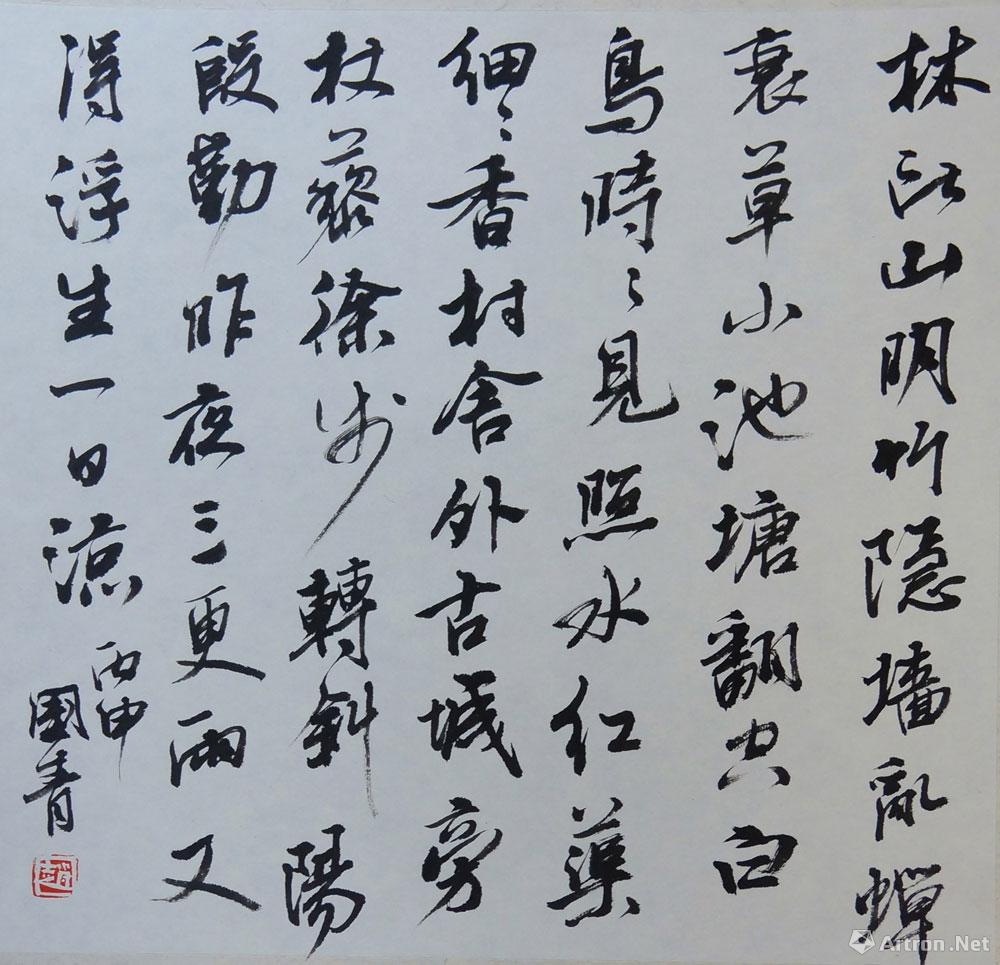 林断山明竹隐墙乱蝉
衰草小池塘翻空白
鳥時〻見照水红蕖
细〻香村舍外古城旁
杖藜徐步轉斜陽
殷勤昨夜三更雨又
得浮生一日凉
丙申
國青
Artron.Net